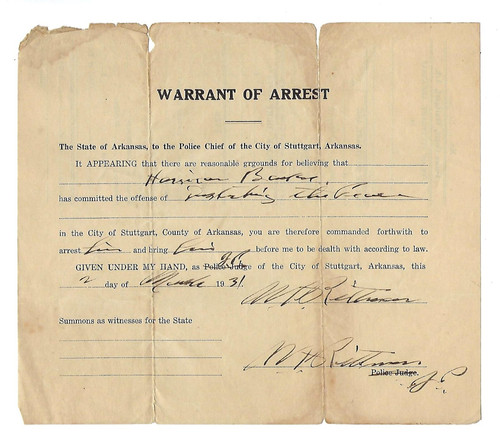 WARRANT OF ARREST
The State of Arkansas, to the Police Chief of the City of Stuttgart, Arkansas.
It APPEARING that there are reasonable grgounds for believing that
Harrison
has committed the offense of the Peace
in the City of Stuttgart, County of Arkansas, you are therefore commanded forthwith to
arrest him and bring him before me to be dealth with according to law.
J.P.
GIVEN UNDER MY HAND, as Police Judge of the City of Stuttgart, Arkansas, this
2 day of March 1931
Summons as witnesses for the State
Police Judge.
J.P.